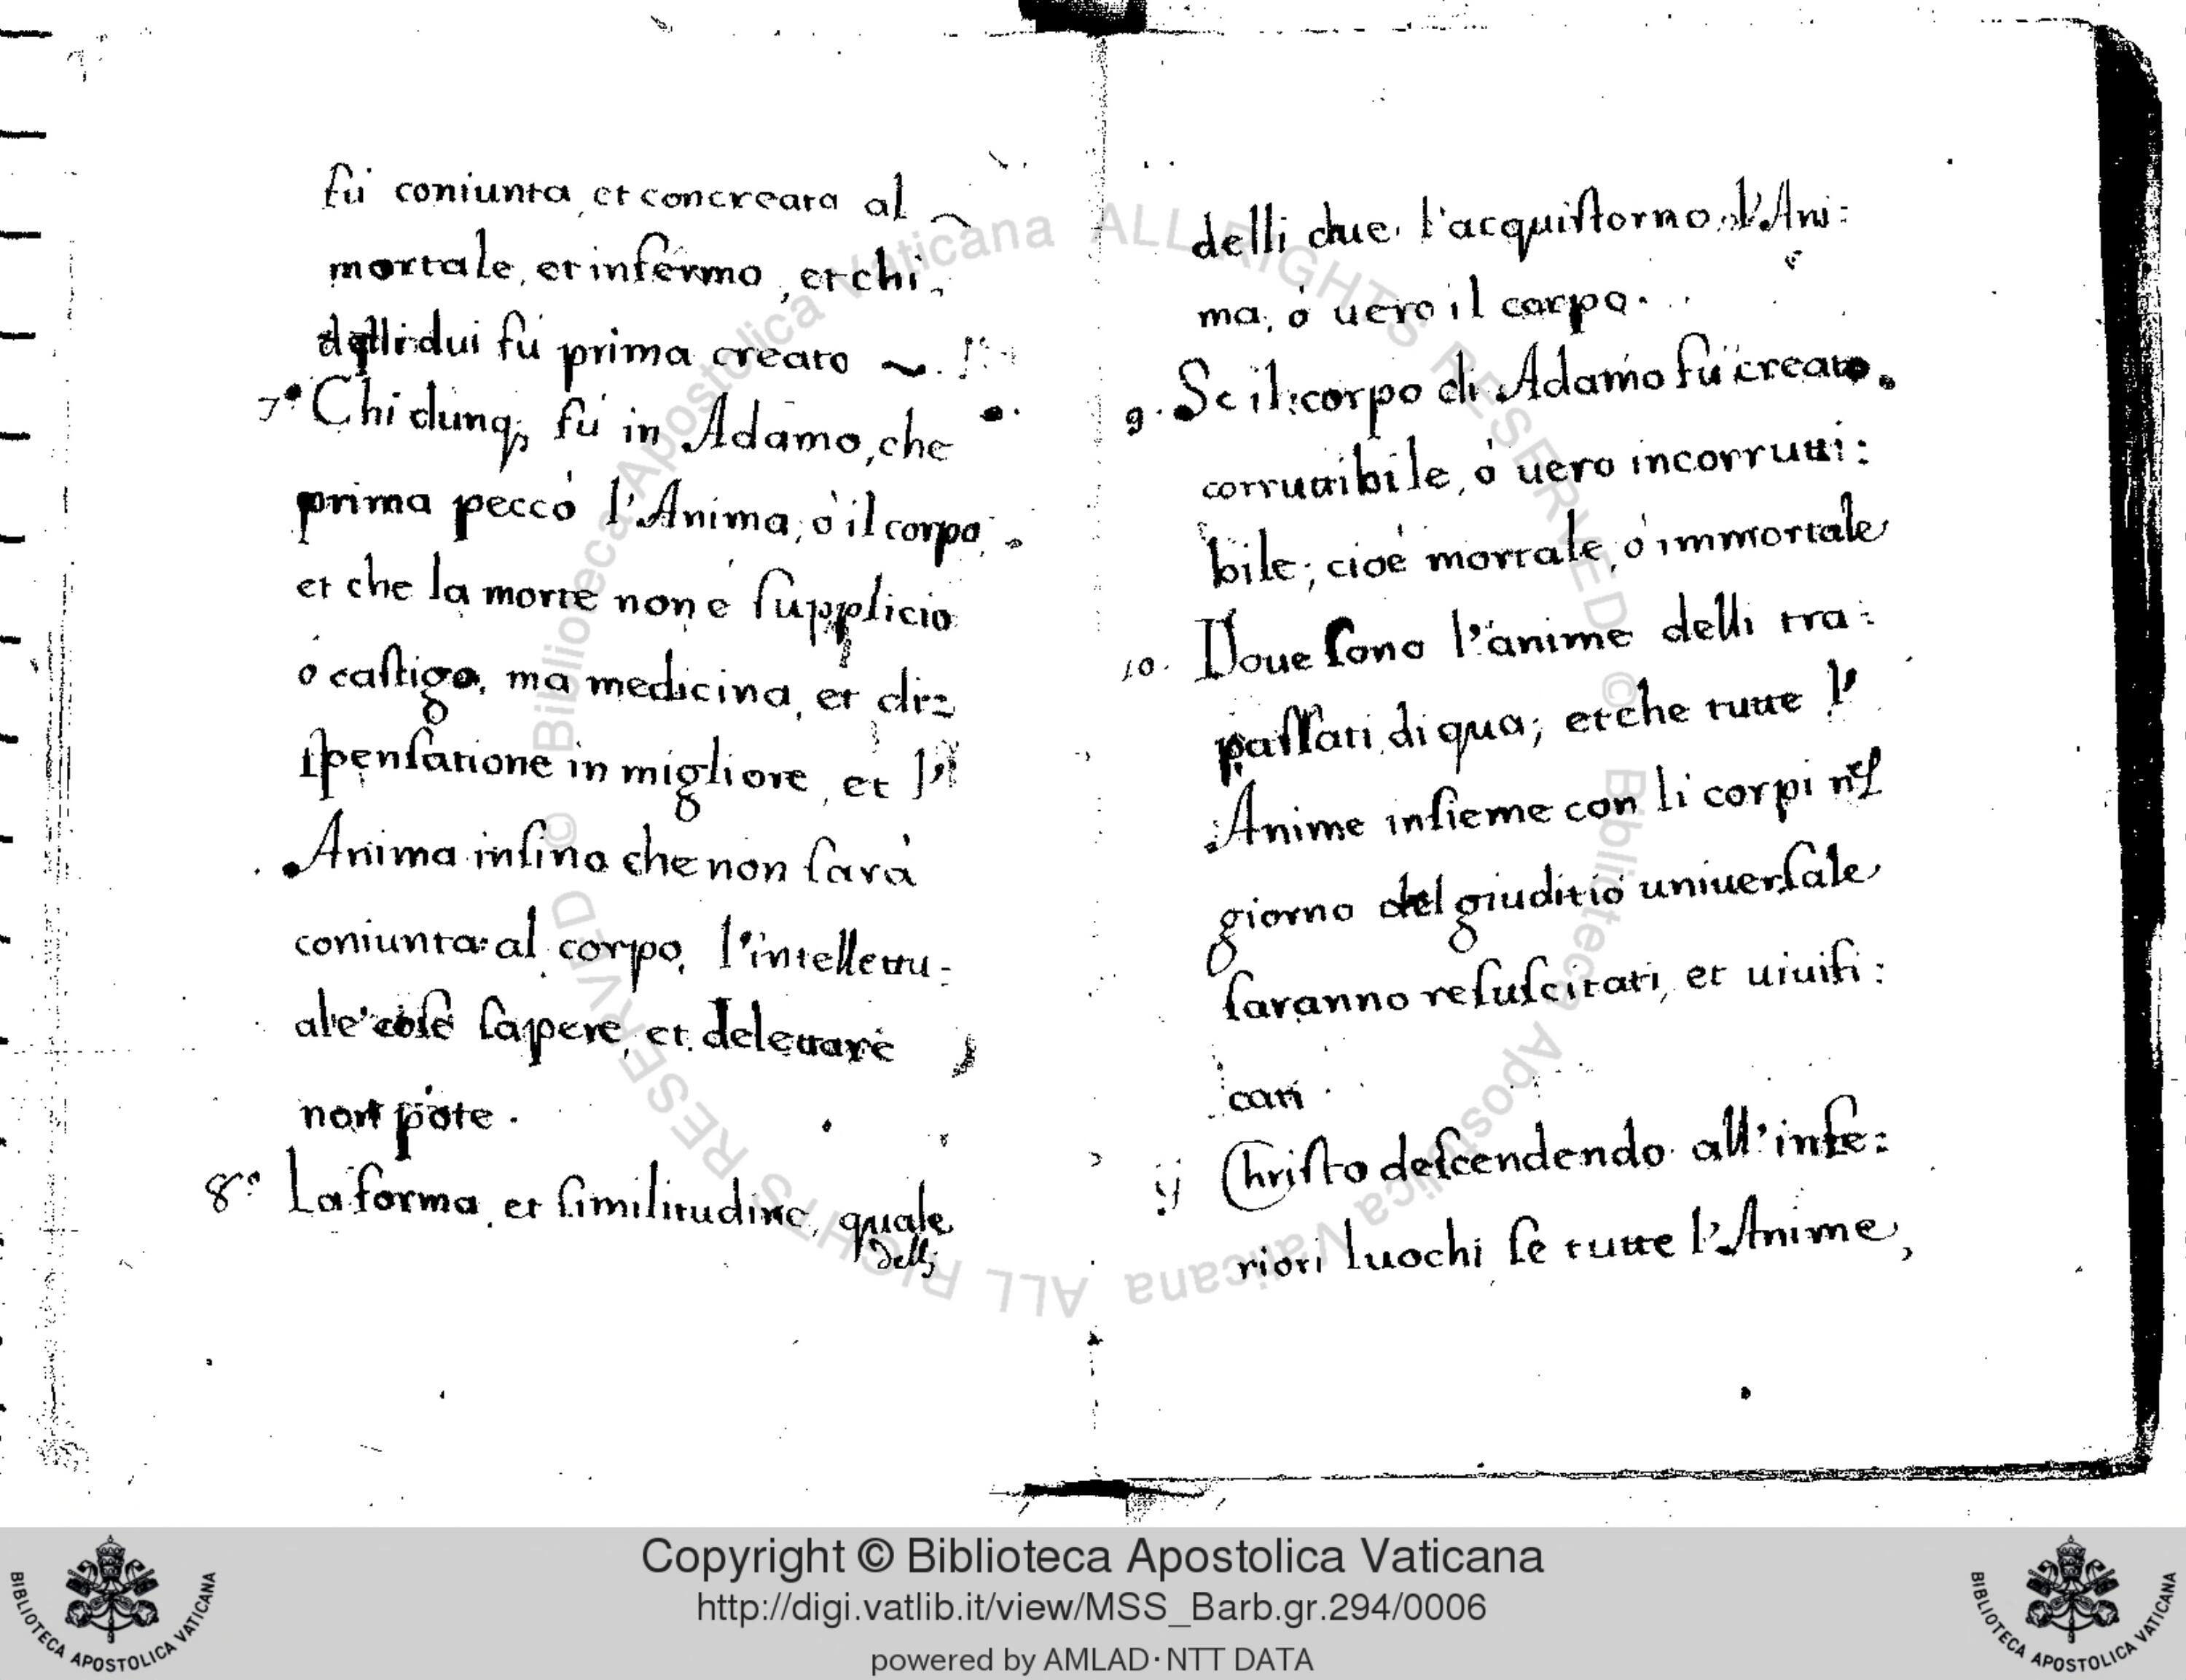 fù coniunta, et concreata al
mortale, et infermo, et chi
delli dui fù prima creato
7.º Chi dunq, fù in Adamo, che
prima peccò l'Anima, ò il corpo,
et che la morte non è supplicio
ò castigo, ma medicina, et di=
spensatione in migliore, et l'
Anima insino che non sarà
coniunta al corpo, l'intellettu=
ale cose sapere, et delettare
non pote.
8.º La forma, et similitudine, quale
delli
delli due l'acquistorno, l'Ani:
ma, ò uero il corpo.
9. Se il corpo di Adamo fù creato
corruttibile, ò uero incorrutti:
bile; cioè mortale, ò immortale
10. Doue sono l'anime delli tra:
passati di qua; et che tutte l'
Anime insieme con li corpi nel
giorno del giuditio uniuersale
saranno resuscitati, et uiuifi:
cati
ij Christo descendendo all'infe:
riori luochi se tutte l'Anime,
BIBLIOTECA APOSTOLICA VATICANA
Copyright © Biblioteca Apostolica Vaticana
http://digi.vatlib.it/view/MSS_Barb.gr.294/0006
powered by AMLAD·NTT DATA
BIBLIOTECA APOSTOLICA VATICANA
© Biblioteca Apostolica Vaticana ALL RIGHTS RESERVED © Biblioteca Apostolica Vaticana ALL RIGHTS RESERVED